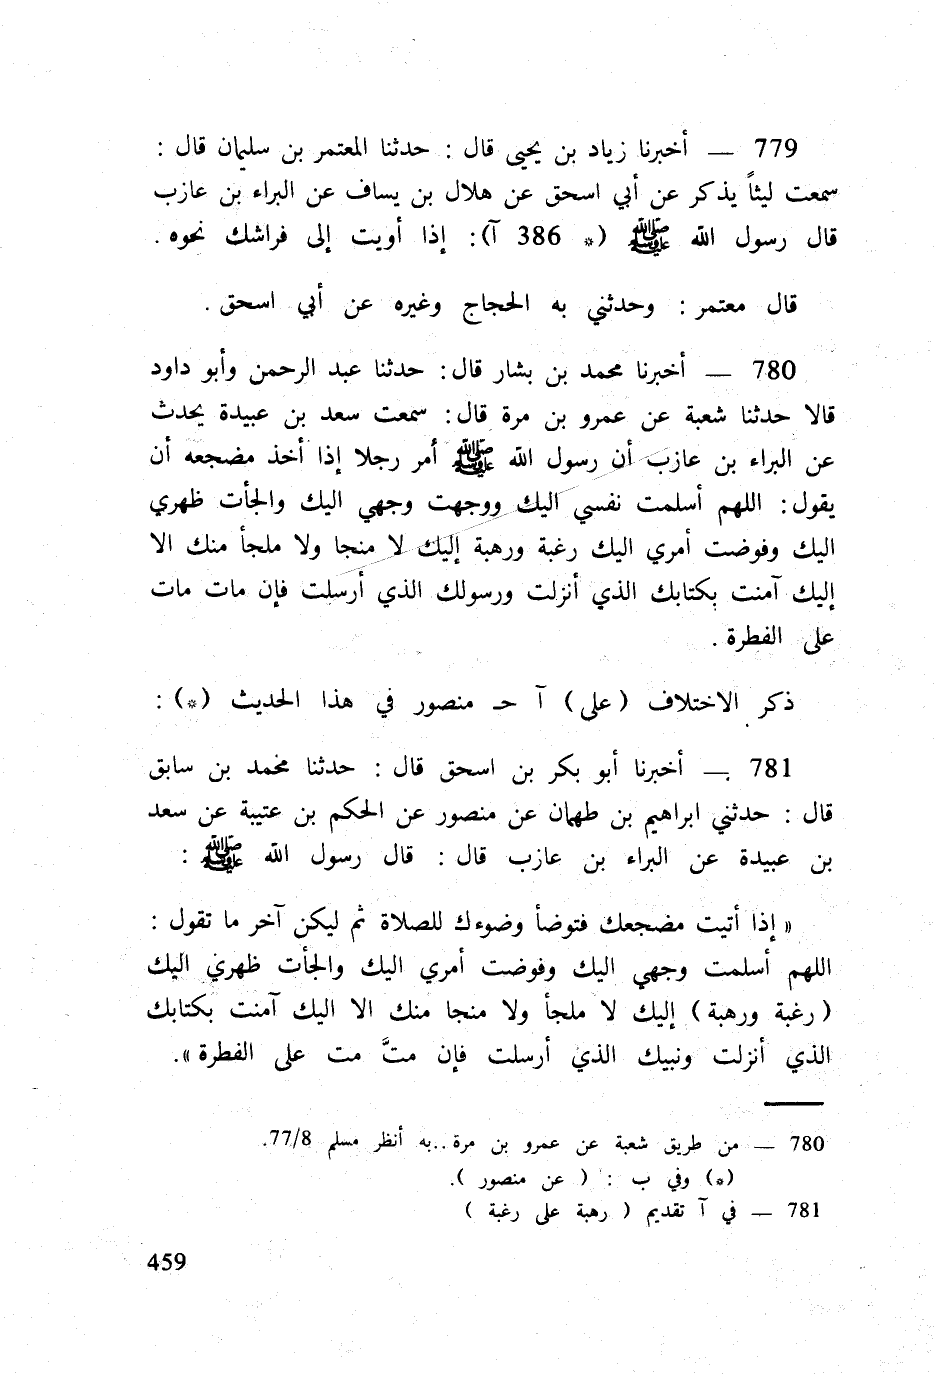 779 — أخبرنا زياد بن يحيى قال : حدثنا المعتمر بن سليمان قال :
سمعت ليثاً يذكر عن أبي اسحق عن هلال بن يساف عن البراء بن عازب
قال رسول الله ﷺ (* 386 آ): إذا أويت إلى فراشك نحوه .
قال معتمر : وحدثني به الحجاج وغيره عن أبي اسحق .
780 — أخبرنا محمد بن بشار قال : حدثنا عبد الرحمن وأبو داود
قالا حدثنا شعبة عن عمرو بن مرة قال : سمعت سعد بن عبيدة يحدث
عن البراء بن عازب أن رسول الله ﷺ أمر رجلا إذا أخذ مضجعه أن
يقول : اللهم أسلمت نفسي اليك ووجهت وجهي اليك والجأت ظهري
اليك وفوضت أمري اليك رغبة ورهبة إليك لا منجا ولا ملجأ منك الا
إليك آمنت بكتابك الذي أنزلت ورسولك الذي أرسلت فإن مات مات
على الفطرة .
ذكر الاختلاف (على) آ حـ منصور في هذا الحديث (*) :
781 — أخبرنا أبو بكر بن اسحق قال : حدثنا محمد بن سابق
قال : حدثني ابراهيم بن طهمان عن منصور عن الحكم بن عتيبة عن سعد
بن عبيدة عن البراء بن عازب قال : قال رسول الله ﷺ :
« إذا أتيت مضجعك فتوضأ وضوءك للصلاة ثم ليكن آخر ما تقول :
اللهم أسلمت وجهي اليك وفوضت أمري اليك والجأت ظهري اليك
( رغبة ورهبة ) إليك لا ملجأ ولا منجا منك الا اليك آمنت بكتابك
الذي أنزلت ونبيك الذي أرسلت فإن متَّ مت على الفطرة ».
780 — من طريق شعبة عن عمرو بن مرة..به أنظر مسلم 77/8.
(*) وفي ب : ( عن منصور ).
781 — في آ تقديم ( رهبة على رغبة )
459